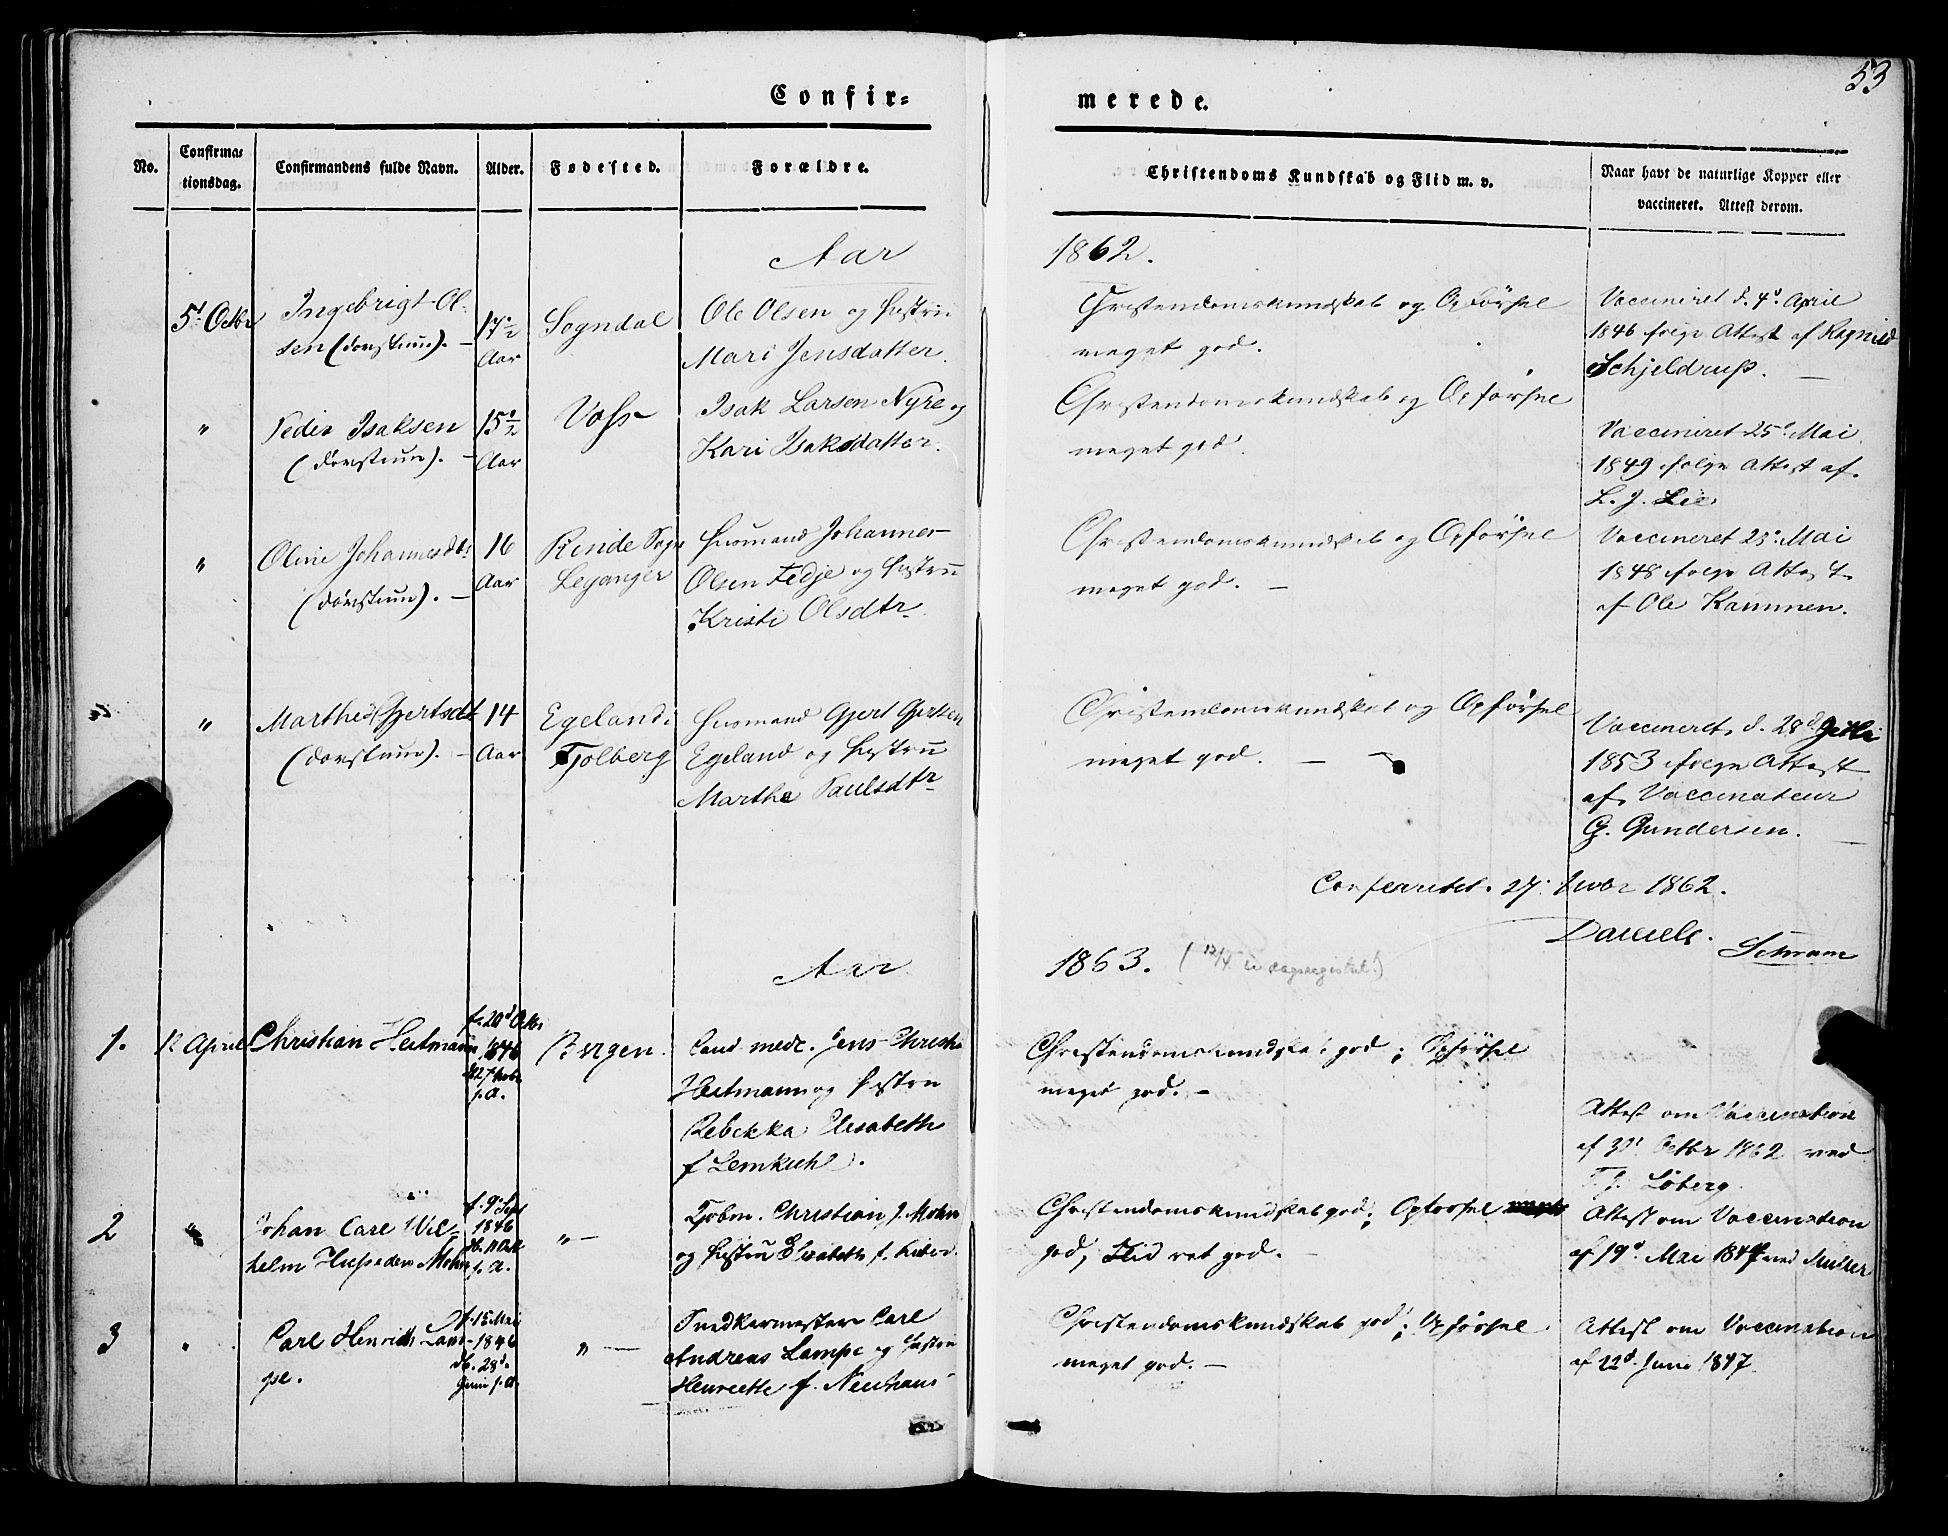 53
Confir=
merede.
No.
Confirma=
tionsdag.
Confirmandens fulde Navn.
Alder.
Fødested.
Forældre.
Christendoms Kundskab og Flid m. v.
Naar havt de naturlige Kopper eller
vaccineret. Attest derom.
Aar
1862.
5t Octbr
Ingebrigt Ol-
sen (døvstum). –
17 1/2
Aar
Sogndal
Ole Olsen og Hustru
Mari Jensdatter.
Christendomskundskab og Opførsel
meget god.
Vaccineret d. 4d April
1846 ifølge Attest af
Schjeldrup. –
"
Peder Isaksen
(døvstum). –
15 1/2
Aar
Voss
Isak Larsen Nyre og
Kari Isaksdatter.
Christendomskundskab og Opførsel
meget god.
Vaccineret 25d Mai
1849 ifølge Attest af
L. J. Lie
"
Oline Johannesdtr
(døvstum). –
16
Aar
Rinde Sogn
Leganger
Husmand Johannes
Olsen Fedje og Hustru
Kristi Olsdtr
Christendomskundskab og Opførsel
meget god. –
Vaccineret 25d Mai
1848 ifølge Attest
af Ole Kamnen.
"
Marthe Gjertsdt
(døvstum). –
14
Aar
Egeland i
Fjolberg
Husmand Gjert Gertsen
Egeland og Hustru
Marthe Paulsdtr
Christendomskundskab og Opførsel
meget god. –
Vaccineret d. 28d
1853 ifølge Attest
af Vaccinateur
G. Gundersen. –
Confereret. 27. 1862.
Daniels.
Schram
Aar
1863. (12/4
1.
12 April
Christian Heitmann
f. 20d Oktr
1846
f. A.
Bergen.
Cand. med. Jens Christian
Heitmann og Hustru
Rebekka Elisabeth
f Lemkuhl.
Christendomskundskab god; Opførsel
meget god. –
Attest om Vaccination
af Octbr 1862 ved
Løberg.
2
"
Johan Carl Wil-
helm Huseden Mohn
f. 9d Sept
1846
f. A.
" –
Kjøbm. Christian J. Mohn
og Hustru Elisabeth f.
Christendomskundskab god; Opførsel
god, Flid ret god. –
Attest om Vaccination
af 19d Mai 1847 ved Müller
3
"
Carl Henrich Lam-
pe.
f. 15 Mai
1846
db. 28d
Juni s. A.
" –
Snedkermester Carl
Andreas Lampe og Hustru
Henriette f. Neuhaus
Christendomskundskab god; Opførsel
meget god. –
Attest om Vaccination
af 22d Juni 1847.